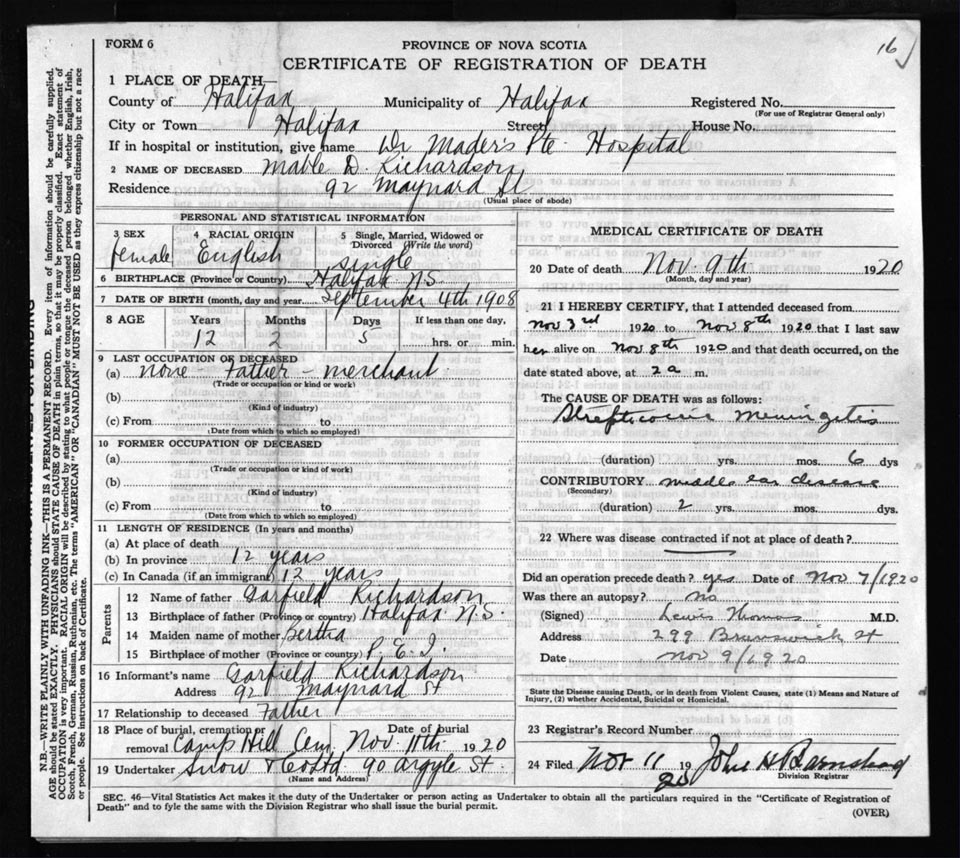 16
FORM 6
PROVINCE OF NOVA SCOTIA
CERTIFICATE OF REGISTRATION OF DEATH
1 PLACE OF DEATH—
County of Halifax Municipality of Halifax Registered No.
(For use of Registrar General only)
City or Town Halifax Street House No.
If in hospital or institution, give name Dr Mader's Pte. Hospital
2 NAME OF DECEASED Mable D. Richardson
Residence 92 Maynard St
(Usual place of abode)
PERSONAL AND STATISTICAL INFORMATION
3 SEX 4 RACIAL ORIGIN 5 Single, Married, Widowed or Divorced (Write the word)
female English single
6 BIRTHPLACE (Province or Country) Halifax N.S.
7 DATE OF BIRTH (month, day and year) September 4th 1908
8 AGE Years Months Days If less than one day,
12 2 5 hrs. or min.
9 LAST OCCUPATION OF DECEASED
(a) none - Father - merchant
(Trade or occupation or kind or work)
(b)
(Kind of industry)
(c) From to
(Date from which to which so employed)
10 FORMER OCCUPATION OF DECEASED
(a)
(Trade or occupation or kind of work)
(b)
(Kind of industry)
(c) From to
(Date from which to which so employed)
11 LENGTH OF RESIDENCE (In years and months)
(a) At place of death
(b) In province 12 years
(c) In Canada (if an immigrant) 12 years
Parents
12 Name of father Garfield Richardson
13 Birthplace of father (Province or country) Halifax N.S.
14 Maiden name of mother Bertha
15 Birthplace of mother (Province or country) P.E.I.
16 Informant's name Garfield Richardson
Address 92 Maynard St
17 Relationship to deceased Father
18 Place of burial, cremation or removal Camp Hill Cem. Date of burial Nov. 11th 1920
19 Undertaker Snow & Co Ltd 90 Argyle St.
(Name and Address)
MEDICAL CERTIFICATE OF DEATH
20 Date of death Nov. 9th 1920
(Month, day and year)
21 I HEREBY CERTIFY, that I attended deceased from
Nov 3rd 1920 to Nov 8th 1920 that I last saw
her alive on Nov 8th 1920 and that death occurred, on the
date stated above, at 2 a m.
The CAUSE OF DEATH was as follows:
Meningitis
(duration) yrs. mos. 6 dys
CONTRIBUTORY middle ear disease
(Secondary)
(duration) 2 yrs. mos. dys.
22 Where was disease contracted if not at place of death?
Did an operation precede death? yes Date of Nov 7/1920
Was there an autopsy? no
(Signed) Lewis Thomas M.D.
Address 299 Brunswick St
Date Nov 9/1920
State the Disease causing Death, or in death from Violent Causes, state (1) Means and Nature of
Injury, (2) whether Accidental, Suicidal or Homicidal.
23 Registrar's Record Number
24 Filed Nov 11 1920 John H Barnstead
Division Registrar
SEC. 46—Vital Statistics Act makes it the duty of the Undertaker or person acting as Undertaker to obtain all the particulars required in the "Certificate of Registration of
Death" and to fyle the same with the Division Registrar who shall issue the burial permit.
(OVER)
N.B.—WRITE PLAINLY WITH UNFADING INK—THIS IS A PERMANENT RECORD. Every item of information should be carefully supplied.
AGE should be stated EXACTLY. PHYSICIANS should STATE CAUSE OF DEATH in plain terms, so that it may be properly classified. Exact statement of
OCCUPATION is very important. RACIAL ORIGIN will be described by stating to what people or tongue the deceased person belonged whether English, Irish,
Scotch, French, German, Russian, Ruthenian, etc. The terms "AMERICAN" OR "CANADIAN" MUST NOT BE USED as they express citizenship but not a race
or people. See instructions on back of Certificate.